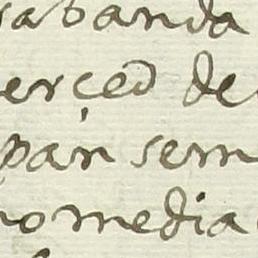 sabanda
erçed de
pan sem
no media